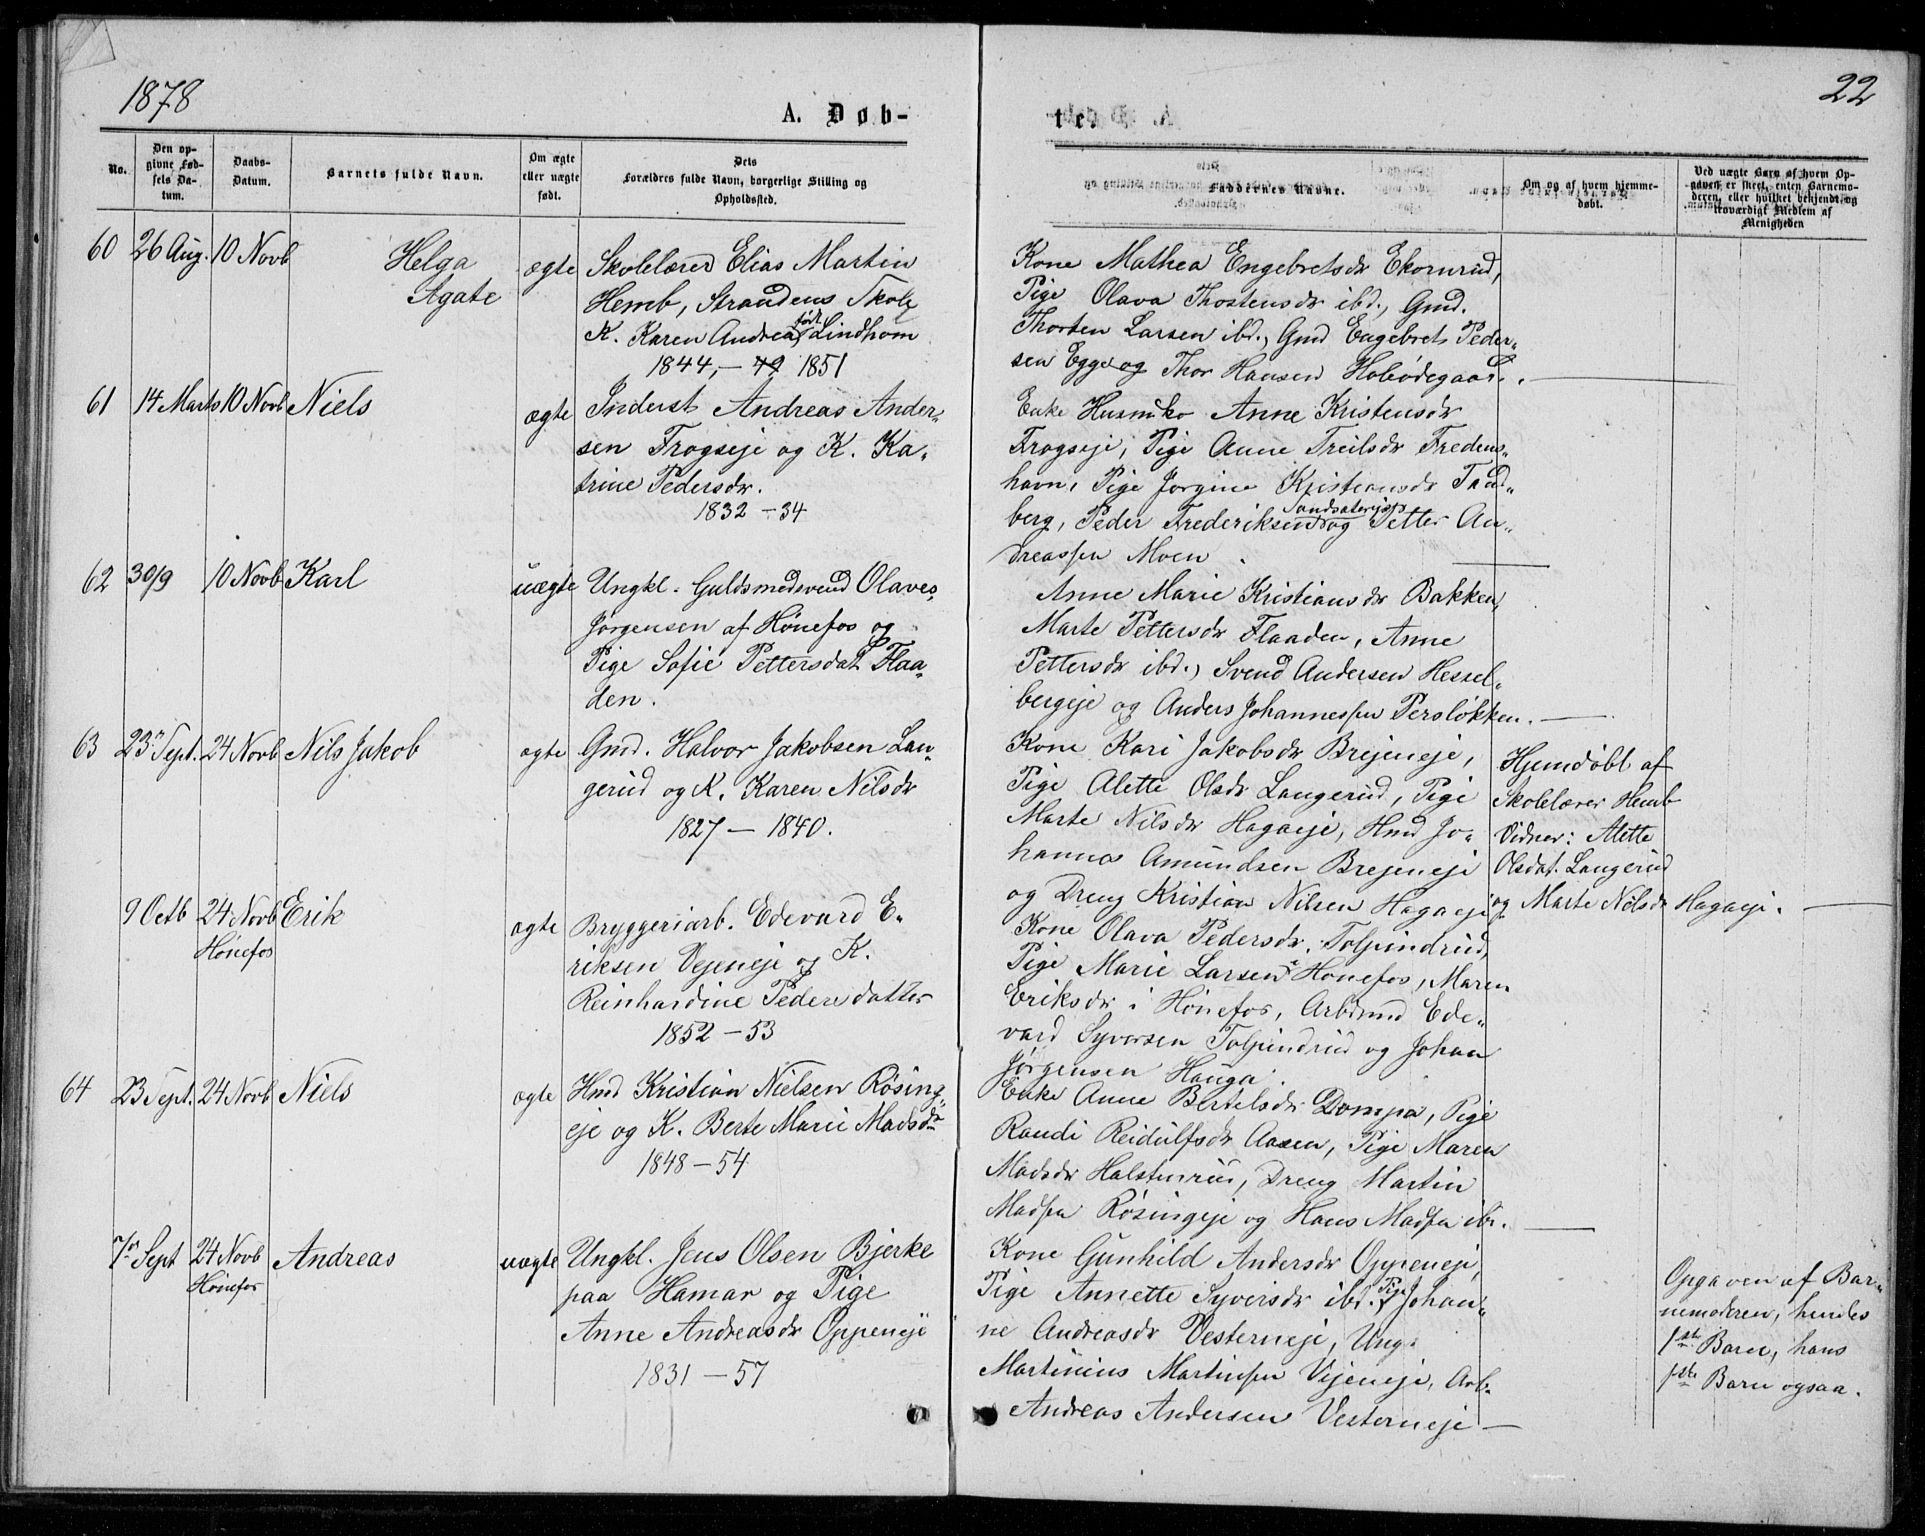 1878
22
A. Døb-
te.
No.
Den op-
givne Fød-
sels Da-
tum.
Daabs-
Datum.
Barnets fulde Navn.
Om ægte
eller uægte
født.
Dets
Forældres fulde Navn, borgerlige Stilling og
Opholdssted.
Faddernes Navne.
Om og af hvem hjemme-
døbt.
Ved uægte Barn af hvem Op-
gaven er skeet, enten Barnemo-
deren, eller hvilket bekjendt og
troværdigt Medlem af
Menigheden
60 26 Aug. 10 Novb Helga
Agate
ægte
Skolelærer Elias Martin
Hemb, Strandens Skole
K. Karen Andrea født Lindhom
1844, – 49 1851
Kone Mathea Engebretsdr Ekornrud,
Pige Olava Thostensdr ibd., Gmd.
Thorsten Larsen ibd., Gmd Engebret Peder-
sen Egge og Thor Hansen Hobødegaard.
61 14 Marts 10 Novb Niels
ægte
Inderst Andreas Ander-
sen Frogseje og K. Ka-
trine Pedersdr.
1832 – 34
Enke Husmko Anne Kristensdr
Frogseje, Pige Anne Treilsdr Fredens-
havn, Pige Jorgine Kristiansdr
berg, Peder Frederiksen og Petter An-
dreassen Moen.
62 30/9 10 Novb Karl
uægte
Ungkl. Guldsmedsvend Olaves
Jørgensen af Hønefos og
Pige Sofie Pettersdat Flaa-
den.
Anne Marie Kristiansdr Bakken,
Marte Pettersdr Flaaden, Anne
Pettersdr ibd., Svend Andersen Hessel-
bergeje og Anders Johannessen Persløkken.
63 23 Sept. 24 Novb Nils Jakob
ægte
Gmd. Halvor Jakobsen Lan-
gerud og K. Karen Nilsdr
1827 – 1840.
Kone Kari Jakobsdr Brejeneje,
Pige Alette Olsdr Langerud, Pige
Marte Nilsdr Hagaeje, Hmd Jo-
hannes Amundsen Brejeneje
og Dreng Kristian Nilsen Hagaeje
Hjemdøbt af
Skolelærer Hemb
Vidner: Alette
Olsdat. Langerud
og Marte Nilsdr Hagaeje.
9 Octb 24 Novb Erik
Hønefos
ægte
Bryggeriarb. Edevard E-
riksen Vejeneje og K.
Reinhardine Pedersdatter
1852 – 53
Kone Olava Pedersdr. Tolpindrud,
Pige Marie Larsen i Hønefos, Maren
Eriksdr i Hønefos, Arbdmd Ede-
vard Syversen Tolpindrud og Johan
Jørgensen Hauga.
64 23 Sept. 24 Novb Niels
ægte
Hmd Kristian Nielsen Røsing-
eje og K. Berte Marie Madsdr
1848 – 54
Enke Anne Bertelsdr Dompa, Pige
Randi Reidulfsdr Aasen, Pige Maren
Madsdr Halstenrud, Dreng Martin
Madsen Røsingeje og Hans Madsen ibd.
7 Sept 24 Novb Andreas
Hønefos
uægte
Ungkl. Jens Olsen Bjerke
paa Hamar og Pige
Anne Andreasdr Oppeneje
1831 – 57
Kone Gunhild Andersdr Oppeneje,
Pige Annette Syversdr ibd. Pige Johan-
ne Andreasdr Vesterneje, Ung-
Martinius Martinsen Vejeneje, Arb-
Andreas Andersen Vesterneje
Opgaven af Bar-
nemoderen, hendes
1ste Barn, hans
1ste Barn ogsaa.